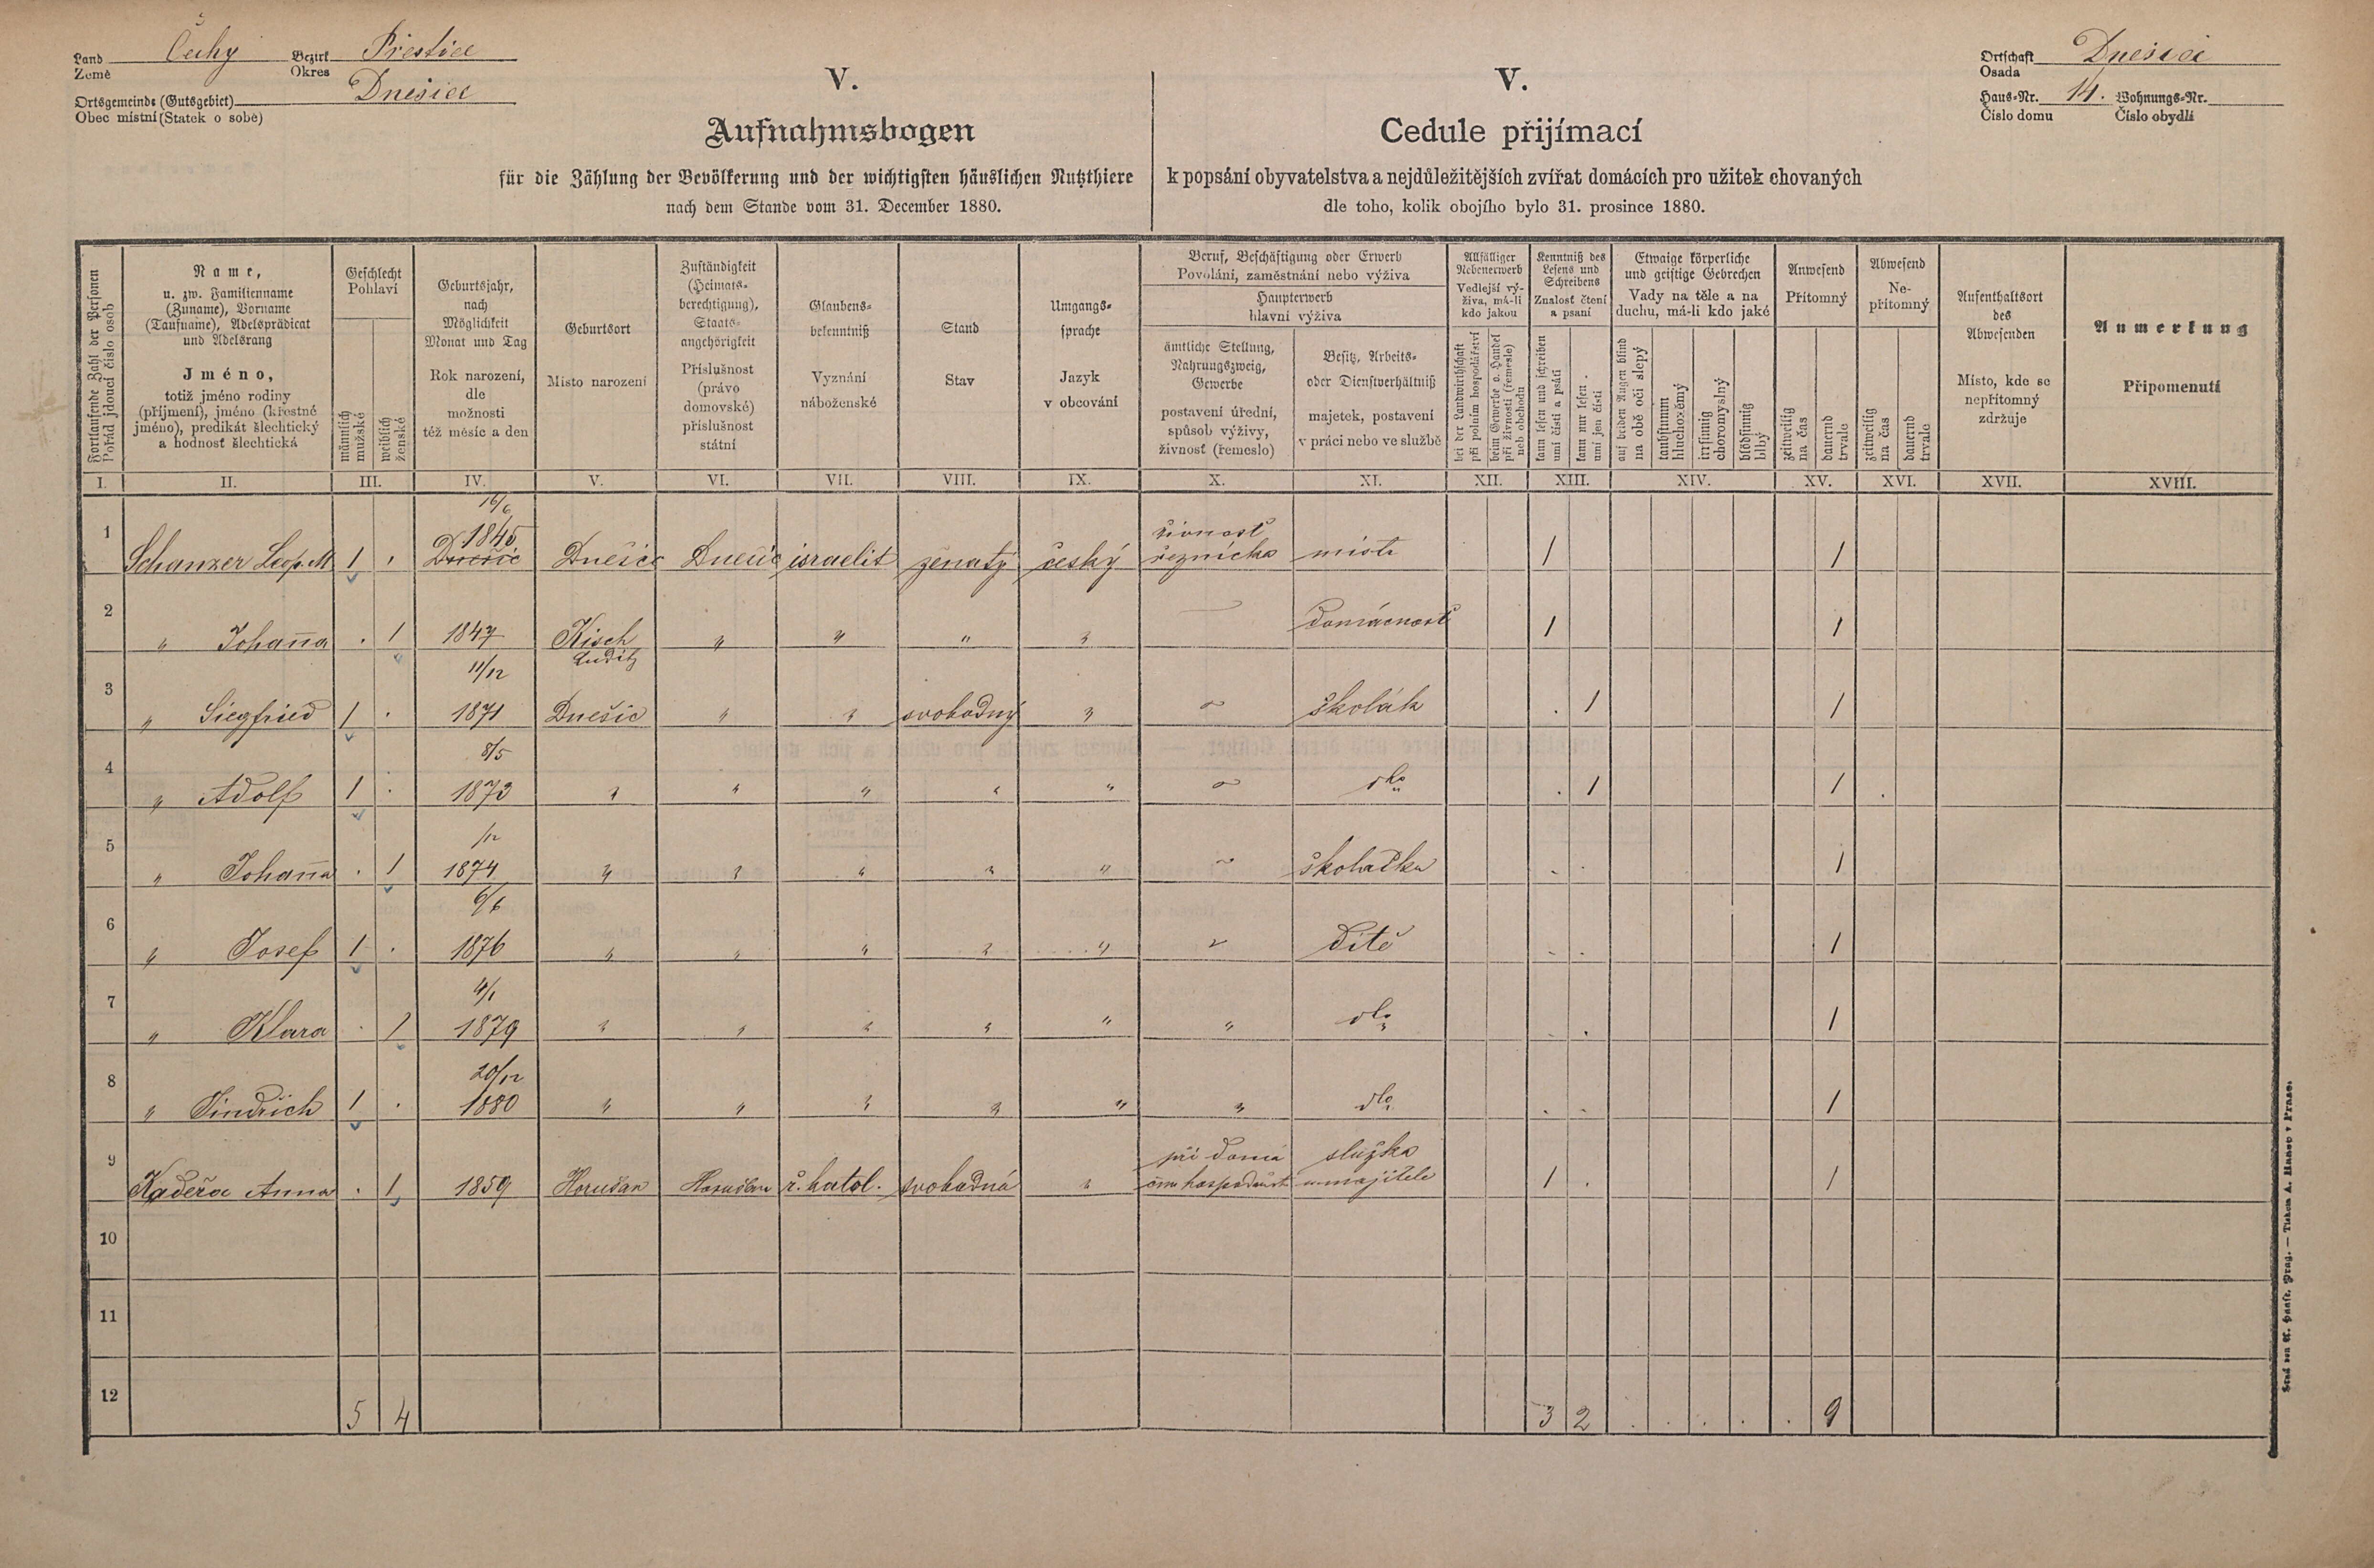 Land Čechy Bezirk Přestice
Země Okres
Ortsgemeinde (Gutsgebiet) Dnešice
Obec místní (Statek o sobě)
Ortschaft Dnešice
Osada
Haus-Nr. 14. Wohnungs-Nr.
Číslo domu Číslo obydlí
V.
Aufnahmsbogen
für die Zählung der Bevölkerung und der wichtigsten häuslichen Nutzthiere
nach dem Stande vom 31. December 1880.
V.
Cedule přijímací
k popsání obyvatelstva a nejdůležitějších zvířat domácích pro užitek chovaných
dle toho, kolik obojího bylo 31. prosince 1880.
Fortlaufende Zahl der Personen
Pořád jdoucí číslo osob
Name,
u. zw. Familienname
(Zuname), Vorname
(Taufname), Adelsprädicat
und Adelsrang
Jméno,
totiž jméno rodiny
(příjmení), jméno (křestné
jméno), predikát šlechtický
a hodnosť šlechtická
Geschlecht
Pohlaví
männlich
mužské
weiblich
ženské
Geburtsjahr,
nach
Möglichkeit
Monat und Tag
Rok narození,
dle
možnosti
též měsíc a den
Geburtsort
Místo narození
Zuständigkeit
(Heimats-
berechtigung),
Staats-
angehörigkeit
Příslušnost
(právo
domovské)
příslušnost
státní
Glaubens-
bekenntniß
Vyznání
náboženské
Stand
Stav
Umgangs-
sprache
Jazyk
v obcování
Beruf, Beschäftigung oder Erwerb
Povolání, zaměstnání nebo výživa
Haupterwerb
hlavní výživa
ämtliche Stellung,
Nahrungszweig,
Gewerbe
postavení úřední,
spůsob výživy,
živnosť (řemeslo)
Besitz, Arbeits-
oder Dienstverhältniß
majetek, postavení
v práci nebo ve službě
Allfälliger
Nebenerwerb
Vedlejší vý-
živa, má-li
kdo jakou
bei der Landwirthschaft
při polním hospodářství
beim Gewerbe o. Handel
při živnosti (řemesle)
neb obchodu
Kenntniß des
Lesens und
Schreibens
Znalosť čtení
a psaní
kann lesen und schreiben
umí čísti a psáti
kann nur lesen
umí jen čísti
Etwaige körperliche
und geistige Gebrechen
Vady na těle a na
duchu, má-li kdo jaké
auf beiden Augen blind
na obě oči slepý
taubstumm
hluchoněmý
irrsinnig
choromyslný
blödsinnig
blbý
Anwesend
Přítomný
zeitweilig
na čas
dauernd
trvale
Abwesend
Ne-
přítomný
zeitweilig
na čas
dauernd
trvale
Aufenthaltsort
des
Abwesenden
Místo, kde se
nepřítomný
zdržuje
Anmerkung
Připomenutí
I. II. III. IV. V. VI. VII. VIII. IX. X. XI. XII. XIII. XIV. XV. XVI. XVII. XVIII.
16/6
1845 živnosť
1 Schanzer Leop. M 1 . Dnešic Dnešic Dnešic israelit ženatý český řeznická mistr 1 1
2 " Johanna . 1 1847 Kisch " " " " domácnosť 1 1
Luditz
11/12
3 " Siegfried 1 . 1871 Dnešic " " svobodný " školák . 1 1
8/5
4 " Adolf 1 . 1873 " " " " " dto . 1 1 .
/12
5 " Johanna . 1 1874 " " " " " školačka . . 1
6/6
6 " Josef 1 . 1876 " " " " " Dítě . . 1
4/1
7 " Klara . 1 1879 " " " " " " dto . . 1
20/12
8 " Jindřich 1 . 1880 " " " " " " dto . . 1
při domá služka
9 Kadeřa Anna . 1 1859 Horušan Horušan ř. katol. svobodná " cím hospodářst. u majitele 1 . 1
10
11
12 5 4 3 2 . . . . . 9
Druck von A. Haase, Prag. — Tiskem A. Haase v Praze.